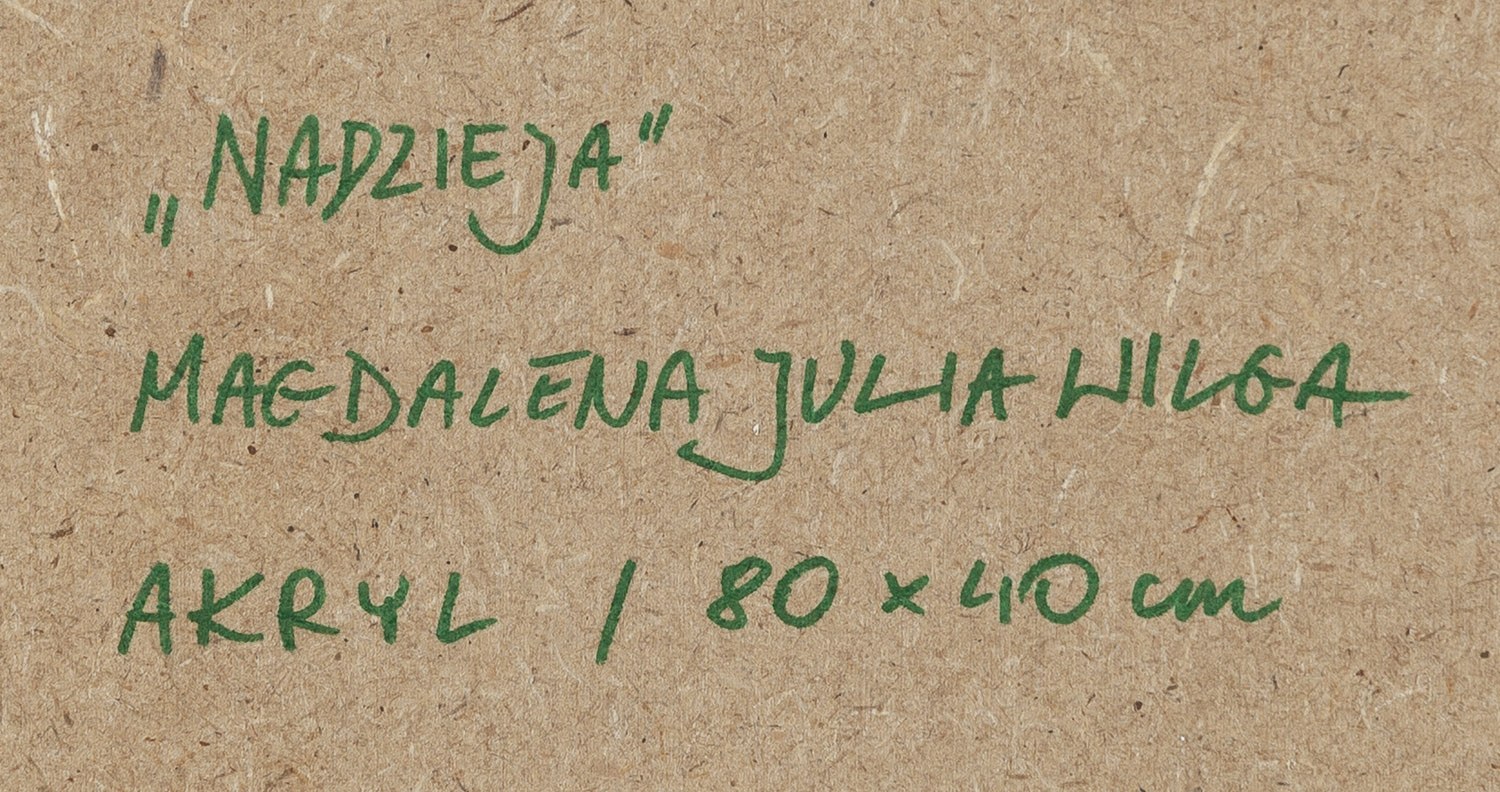 „NADZIEJA”
MAGDALENA JULIA WILGA
AKRYL / 80 x 40 cm